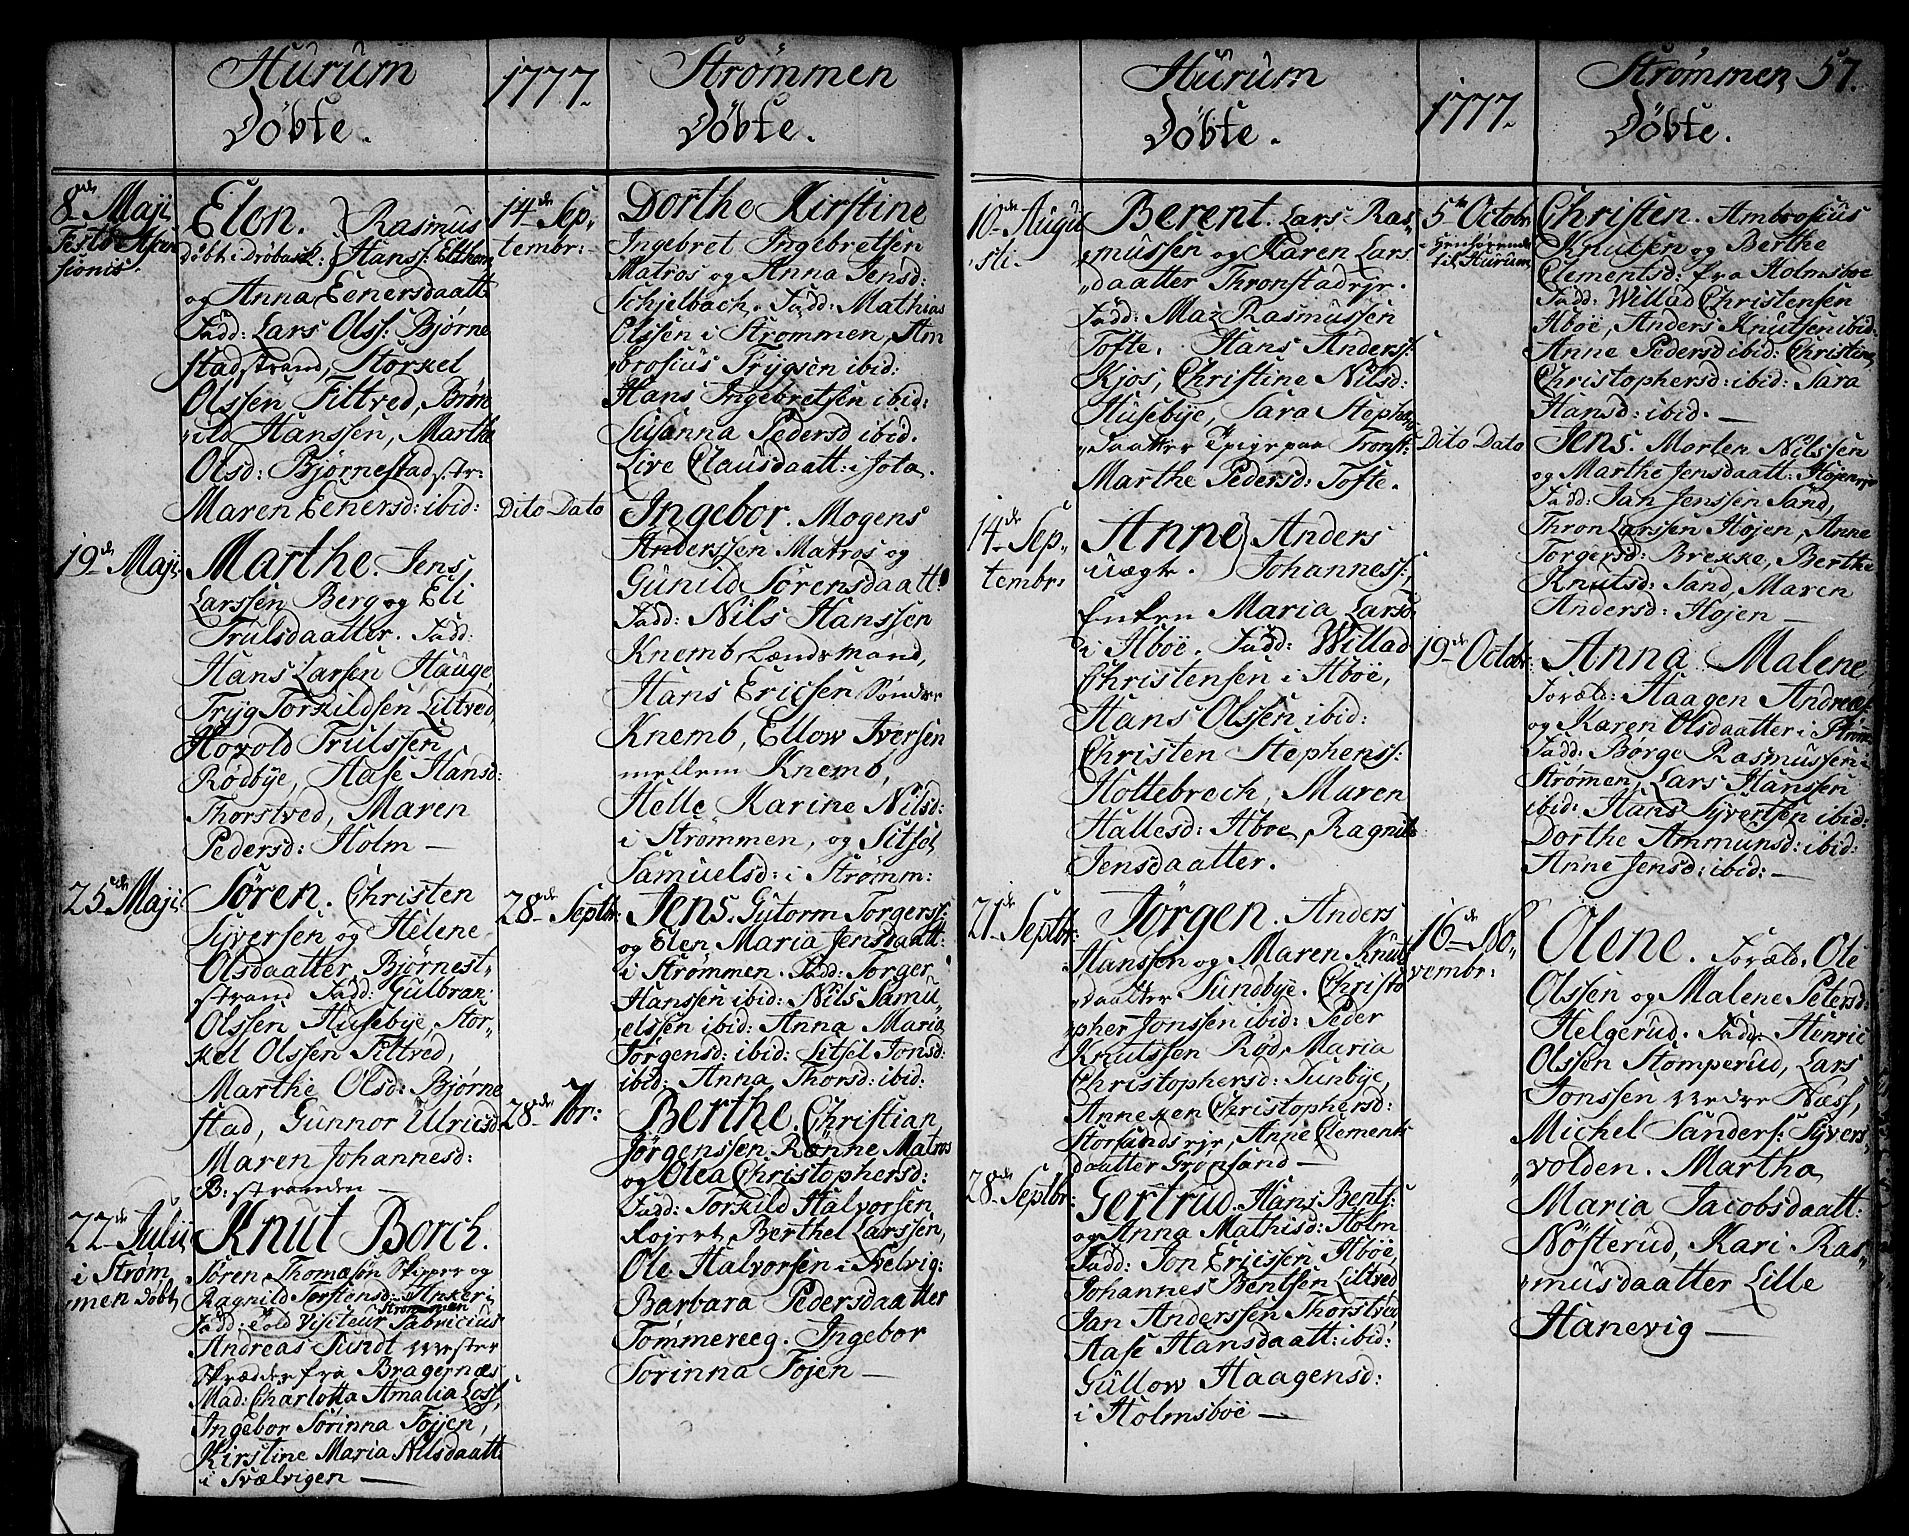 Hurum
Döbte.
1777.
Strømmen
Döbte.
8de Maji
Festo Asen
sionis.
Elon. } Rasmus
Döbt i Dröbach: } Hanss: Elthom
og Anna Eenersdaatt:
Fadd: Lars Olss: Bjørne
stadstrand, Storkel
Olssen Filtved,
Hanssen, Marthe
Olsd: Bjørnestad, str:
Maren Eenersd: ibid:
19de Maji
Marthe. Jens
Larssen Berg og Eli
Trulsdaatter. Fadd:
Hans Larssen Hauge
Tryg Torkildsen Liltved,
Hovold Trulssen
Rödbye, Aase Hansd:
Thorstved, Maren
Pedersd: Holm —
25de Maji
Sören. Christen
Syversen og Helene
Olsdaatter Bjørnest,
strand Fadd: Gulbran,
Olssen Husebye, Stor,
kel Olssen Filtved,
Marthe Olsd: Bjørne
stad, Gunnor Ulricsd:
Maren Johannesd:
B: stranden —
22de Julii
i Strøm
men döbt
Knut Borch.
Sören Thomasön Skipper og
Ragnild Torstensd: Anker i
Strømmen
Fadd: Visiteur Fabricius
Andreas Tundt Mester
Skrædder fra Bragernæs
Mad: Charlotta Amalia Loss,
Ingebor Sörinna Föyen,
Kirstine Maria Nilsdaatt:
i Svælvigen —
14de Sep,
tembr:
Dorthe Kirstine
Ingebret Ingebretsen
Matros og Anna Jensd:
Schjelbach. Fadd: Mathias
Olssen i Strømmen, Am
brosius Trygsen ibid:
Hans Ingebretsen ibid:
Susanna Pedersd ibid.
Live Clausdaatt: i Jota.
Dito Dato
Ingebor. Mogens
Anderssen Matros og
Gunild Sörensdaatt:
Fadd: Nils Hanssen
Knemb, Lændsmand,
Hans Ericsen Sönder
Knemb, Ellow Iversen
mellem Knemb,
Helle Karine Nilsd:
i Strømmen, og Sitsel
Samuelsd: i Strømm:
28de Septbr:
Jens. Gutorm Torgerss:
og Elen Maria Jensdaatt:
i Strømmen. Fadd: Torger
Hanssen ibid: Nils Samu,
elssen ibid: Anna Maria
Jörgensd: ibid: Litsel Jonsd:
ibid: Anna Thorsd: ibid:
28de 7br:
Berthe. Christian
Jörgenssen Rönne Matros
og Olea Christophersd:
Fadd: Torkild Halvorsen
Rojert, Berthel Larssen,
Ole Halvorsen i Svelvig:
Barbara Pedersdaatter
Tömmereeg. Ingebor
Sorinna Föjen —
Hurum
Döbte.
1777.
Strømmen
Döbte.
57.
10de Augu
sti.
Berent. Lars Ras,
mussen og Karen Lars
daatter Thronstadrjr.
Fadd: Maz Rasmussen
Tofte. Hans Anderss:
Kjos, Christine Nilsd:
Husebye, Sara Stephens
daatter Epigepaa Tronst:
Marthe Pedersd: Tofte.
14de Sep,
tembr:
Anne } Anders
uægte. } Johanness:
Enken Maria Larsd:
i Hböe. Fadd: Willad
Christensen i Hböe,
Hans Olssen ibid:
Christen Stephenss:
Hottebrech, Maren
Hallesd: Hboe, Ragnild
Jensdaatter.
21de Septbr:
Jörgen. Anders
Hanssen og Maren Knuts
daatter Sundbye. Christo
pher Jonssen ibid: Peder
Knutssen Röd, Maria
Christophersd: Sunbye,
Anneken Christophersd:
Storsands rjr, Anne Clements
daatter Grönsand —
28de Septbr:
Gertrud. Hans Bents:
og Anna Mathisd: Holm
Fadd: Jon Ericssen Hböe,
Johannes Bentsen Liltved
Jan Anderssen Thorstved
Aase Hansdaatt: ibid:
Gullow Haagensd:
i Holmsböe —
5te Octobr
Henhørende
til Hurum
Christen. Ambrosius
Knutsen og Berthe
Clementsd: fra Holmsboe
Fadd: Willad Christensen
Hböe, Anders Knutsen ibid:
Anne Pedersd ibid: Christine
Christophersd: ibid: Sara
Hansd: ibid. —
Dito Dato
Jens. Morten Nilssen
og Marthe Jensdaatt: Höjen rjr
Fadd: Jan Jenssen Sand,
Thron Larssen Höjen, Anne
Torgersd: Brekke, Berthe
Knutsd: Sand, Maren
Andersd: Höjen —
19de Octobr:
Anna Malene
Foræld: Haagen Andreæs
og Karen Olsdaatter i Strøm
Fadd: Borge Rasmussen i
Strømen, Lars Hanssen
ibid: Hans Syvertsen ibid:
Dorthe Ammunsd: ibid:
Anne Jensd: ibid: —
16de No,
vembr:
Olene. Foræld. Ole
Olssen og Malene Petersd:
Helgerud. Fadd: Henric
Olssen Stomperud, Lars
Jonssen Nedre Næss,
Michel Sanders: Syvers,
volden. Martha
Maria Jacobsdaatt:
Nösterud, Kari Ras,
musdaatter Lille
Hanevig —